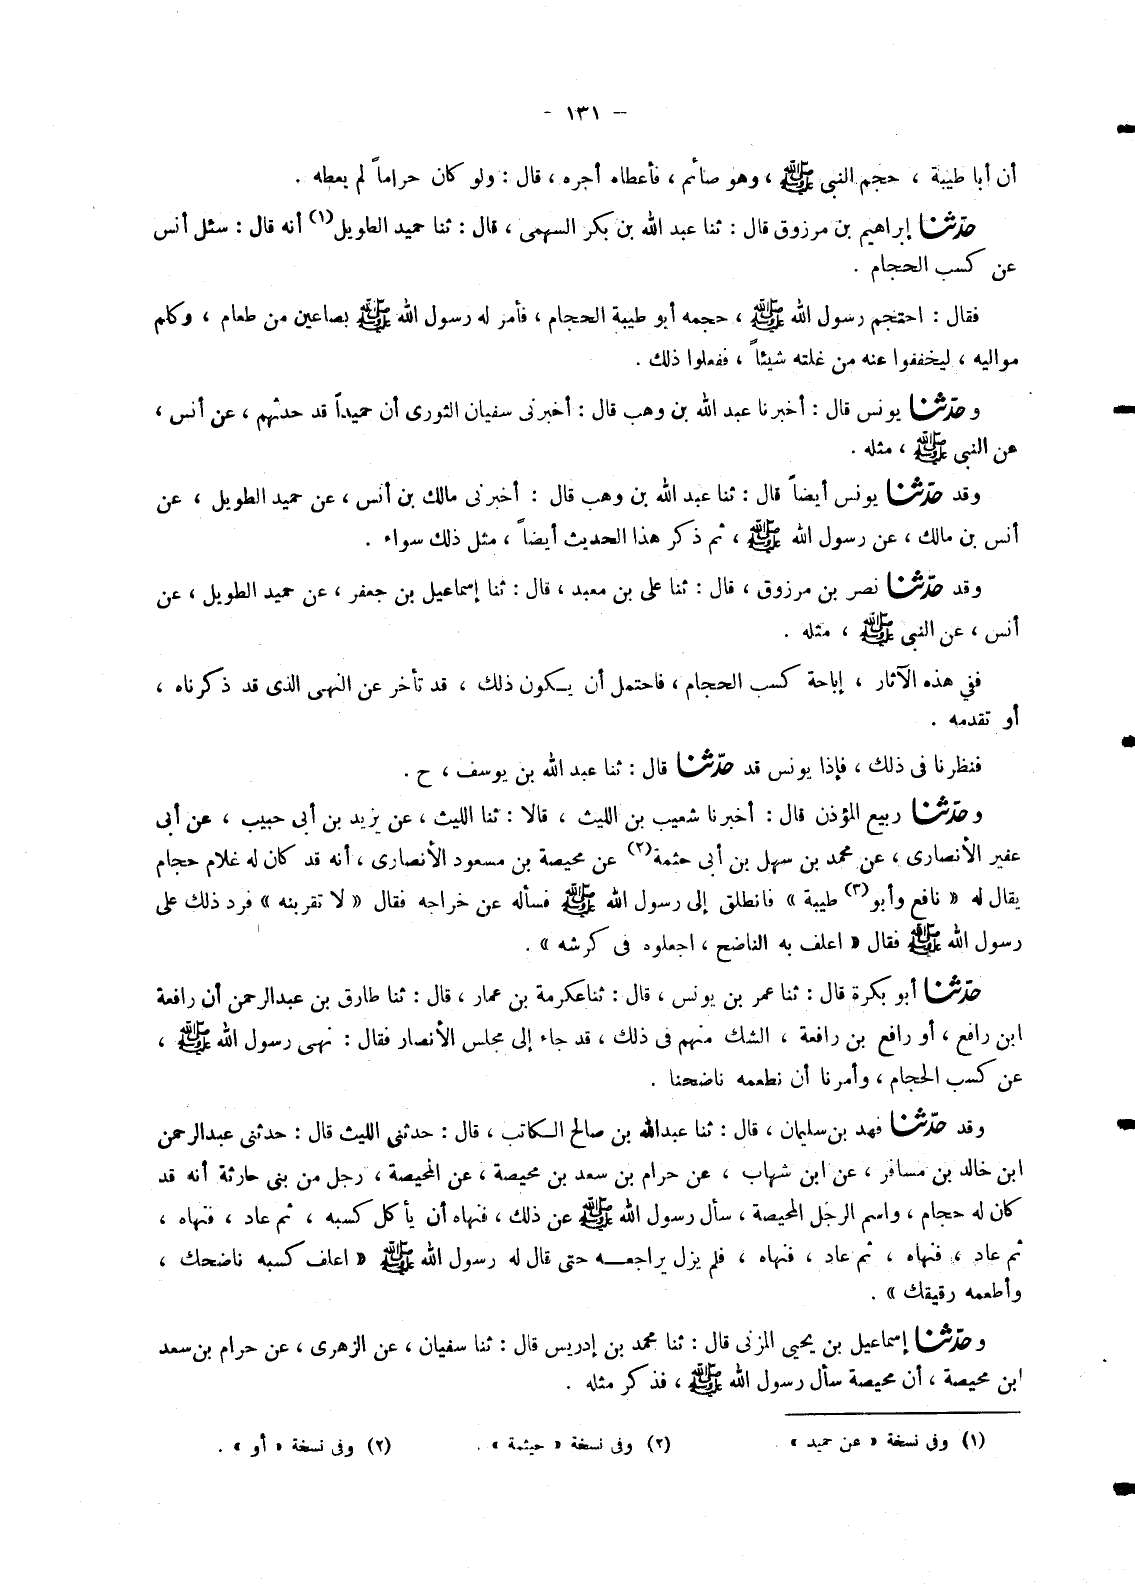 – ١٣١ -
أن أبا طيبة ، حجم النبى ﷺ ، وهو صائم ، فأعطاه أجره ، قال : ولو كان حراماً لم يعطه .
حدّثنا إبراهيم بن مرزوق قال : ثنا عبد الله بن بكر السهمى ، قال : ثنا حميد الطويل(١) أنه قال : سئل أنس
عن كسب الحجام .
فقال : احتجم رسول الله ﷺ ، حجمه أبو طيبة الحجام ، فأمر له رسول الله ﷺ بصاعين من طعام ، وكلم
مواليه ، ليخففوا عنه من غلته شيئاً ، ففعلوا ذلك .
و حدّثنا يونس قال : أخبرنا عبد الله بن وهب قال : أخبرنى سفيان الثورى أن حميداً قد حدثهم ، عن أنس ،
عن النبى ﷺ ، مثله .
وقد حدّثنا يونس أيضاً قال : ثنا عبد الله بن وهب قال : أخبرنى مالك بن أنس ، عن حميد الطويل ، عن
أنس بن مالك ، عن رسول الله ﷺ ، ثم ذكر هذا الحديث أيضاً ، مثل ذلك سواء .
وقد حدّثنا نصر بن مرزوق ، قال : ثنا على بن معبد ، قال : ثنا إسماعيل بن جعفر ، عن حميد الطويل ، عن
أنس ، عن النبى ﷺ ، مثله .
ففي هذه الآثار ، إباحة كسب الحجام ، فاحتمل أن يكون ذلك ، قد تأخر عن النهى الذى قد ذكرناه ،
أو تقدمه .
فنظرنا فى ذلك ، فإذا يونس قد حدّثنا قال : ثنا عبد الله بن يوسف ، ح .
و حدّثنا ربيع المؤذن قال : أخبرنا شعيب بن الليث ، قالا : ثنا الليث ، عن يزيد بن أبى حبيب ، عن أبى
عفير الأنصارى ، عن محمد بن سهل بن أبى حثمة(٢) عن محيصة بن مسعود الأنصارى ، أنه قد كان له غلام حجام
يقال له « نافع وأبو(٣) طيبة » فانطلق إلى رسول الله ﷺ فسأله عن خراجه فقال « لا تقربنه » فرد ذلك على
رسول الله ﷺ فقال « اعلف به الناضح ، اجعلوه فى كرشه » .
حدّثنا أبو بكرة قال : ثنا عمر بن يونس ، قال : ثنا عكرمة بن عمار ، قال : ثنا طارق بن عبدالرحمن أن رافعة
ابن رافع ، أو رافع بن رافعة ، الشك منهم فى ذلك ، قد جاء إلى مجلس الأنصار فقال : نهى رسول الله ﷺ ،
عن كسب الحجام ، وأمرنا أن نطعمه ناضحنا .
وقد حدّثنا فهد بن سليمان ، قال : ثنا عبدالله بن صالح الكاتب ، قال : حدثنى الليث قال : حدثنى عبدالرحمن
ابن خالد بن مسافر ، عن ابن شهاب ، عن حرام بن سعد بن محيصة ، عن المحيصة ، رجل من بنى حارثة أنه قد
كان له حجام ، واسم الرجل المحيصة ، سأل رسول الله ﷺ عن ذلك ، فنهاه أن يأكل كسبه ، ثم عاد ، فنهاه ،
ثم عاد ، فنهاه ، ثم عاد ، فنهاه ، فلم يزل يراجعه حتى قال له رسول الله ﷺ « اعلف كسبه ناضحك ،
وأطعمه رقيقك » .
و حدّثنا إسماعيل بن يحيى المزنى قال : ثنا محمد بن إدريس قال : ثنا سفيان ، عن الزهرى ، عن حرام بن سعد
ابن محيصة ، أن محيصة سأل رسول الله ﷺ ، فذكر مثله .
(١) وفى نسخة « عن حميد » . (٢) وفى نسخة « حيثمة » . (٢) وفى نسخة « أو » .